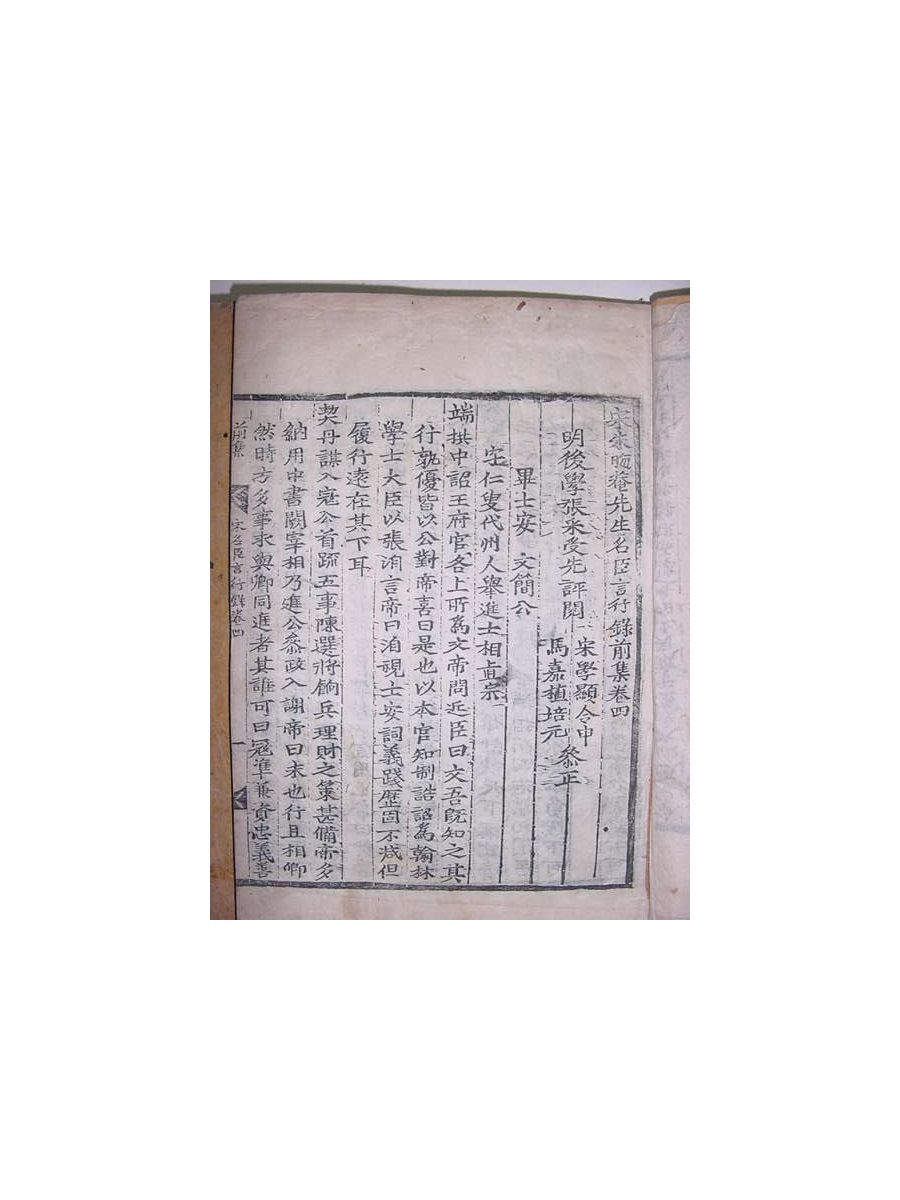 宋朱晦菴先生名臣言行錄前集卷四
明後學張采受先評閱
宋學顯令申
馬嘉植培元
叅正
畢士安 文簡公
字仁叟代州人舉進士相真宗
端拱中詔王府官各上所爲文帝問近臣曰文吾既知之其
行孰優皆以公對帝喜曰是也以本官知制誥詔爲翰林
學士大臣以張洎言帝曰洎視士安詞義踐歷固不减但
履行遠在其下耳
契丹謀入寇公首疏五事陳選將餉兵理財之策甚備帝多
納用中書闕宰相乃進公叅政入謝帝曰未也行且相卿
然時方多事求與卿同進者其誰可曰寇準兼資忠義善
前集
宋名臣言行錄卷四
一